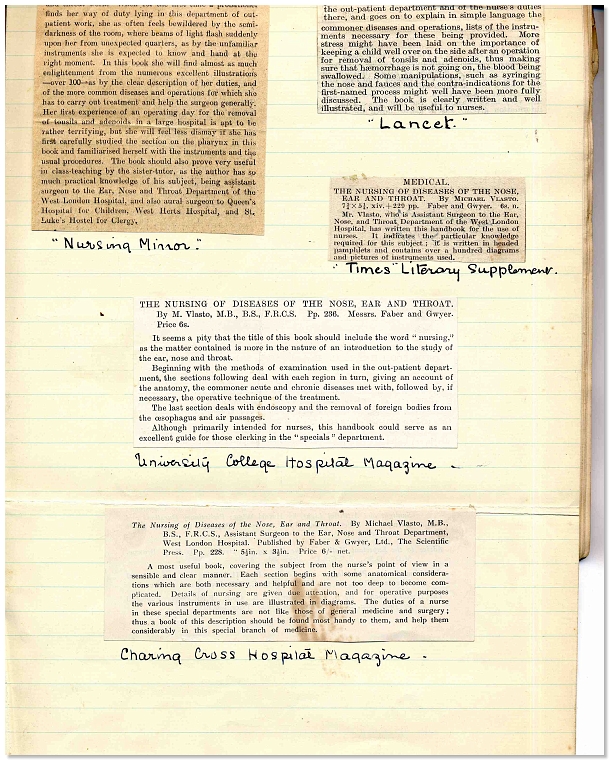 finds her way of duty lying in this department of out-
patient work, she as often feels bewildered by the semi-
darkness of the room, where beams of light flash suddenly
upon her from unexpected quarters, as by the unfamiliar
instruments she is expected to know and hand at the
right moment. In this book she will find almost as much
enlightenment from the numerous excellent illustrations
—over 100—as by the clear description of her duties, and
of the more common diseases and operations for which she
has to carry out treatment and help the surgeon generally.
Her first experience of an operating day for the removal
of tonsils and adenoids in a large hospital is apt to be
rather terrifying, but she will feel less dismay if she has
first carefully studied the section on the pharynx in this
book and familiarised herself with the instruments and the
usual procedures. The book should also prove very useful
in class-teaching by the sister-tutor, as the author has so
much practical knowledge of his subject, being assistant
surgeon to the Ear, Nose and Throat Department of the
West London Hospital, and also aural surgeon to Queen's
Hospital for Children, West Herts Hospital, and St.
Luke's Hostel for Clergy.
"Nursing Mirror."
the out-patient department and of the nurse's duties
there, and goes on to explain in simple language the
commoner diseases and operations, lists of the instru-
ments necessary for these being provided. More
stress might have been laid on the importance of
keeping a child well over on the side after an operation
for removal of tonsils and adenoids, thus making
sure that hæmorrhage is not going on, the blood being
swallowed. Some manipulations, such as syringing
the nose and fauces and the contra-indications for the
first-named process might well have been more fully
discussed. The book is clearly written and well
illustrated, and will be useful to nurses.
"Lancet."
MEDICAL.
THE NURSING OF DISEASES OF THE NOSE,
EAR AND THROAT. By MICHAEL VLASTO.
7¼ × 5¼, xiv.+229 pp. Faber and Gwyer. 6s. n.
Mr. Vlasto, who is Assistant Surgeon to the Ear,
Nose, and Throat Department of the West London
Hospital, has written this handbook for the use of
nurses. It indicates the particular knowledge
required for this subject; it is written in headed
pamphlets and contains over a hundred diagrams
and pictures of instruments used.
"Times" Literary Supplement.
THE NURSING OF DISEASES OF THE NOSE, EAR AND THROAT.
By M. Vlasto, M.B., B.S., F.R.C.S. Pp. 236. Messrs. Faber and Gwyer.
Price 6s.
It seems a pity that the title of this book should include the word "nursing,"
as the matter contained is more in the nature of an introduction to the study of
the ear, nose and throat.
Beginning with the methods of examination used in the out-patient depart-
ment, the sections following deal with each region in turn, giving an account of
the anatomy, the commoner acute and chronic diseases met with, followed by, if
necessary, the operative technique of the treatment.
The last section deals with endoscopy and the removal of foreign bodies from
the œsophagus and air passages.
Although primarily intended for nurses, this handbook could serve as an
excellent guide for those clerking in the "specials" department.
University College Hospital Magazine —
The Nursing of Diseases of the Nose, Ear and Throat. By Michael Vlasto, M.B.,
B.S., F.R.C.S., Assistant Surgeon to the Ear, Nose and Throat Department,
West London Hospital. Published by Faber & Gwyer, Ltd., The Scientific
Press. Pp. 228. " 5½in. x 3½in. Price 6/- net.
A most useful book, covering the subject from the nurse's point of view in a
sensible and clear manner. Each section begins with some anatomical considera-
tions which are both necessary and helpful and are not too deep to become com-
plicated. Details of nursing are given due attention, and for operative purposes
the various instruments in use are illustrated in diagrams. The duties of a nurse
in these special departments are not like those of general medicine and surgery;
thus a book of this description should be found most handy to them, and help them
considerably in this special branch of medicine.
Charing Cross Hospital Magazine .